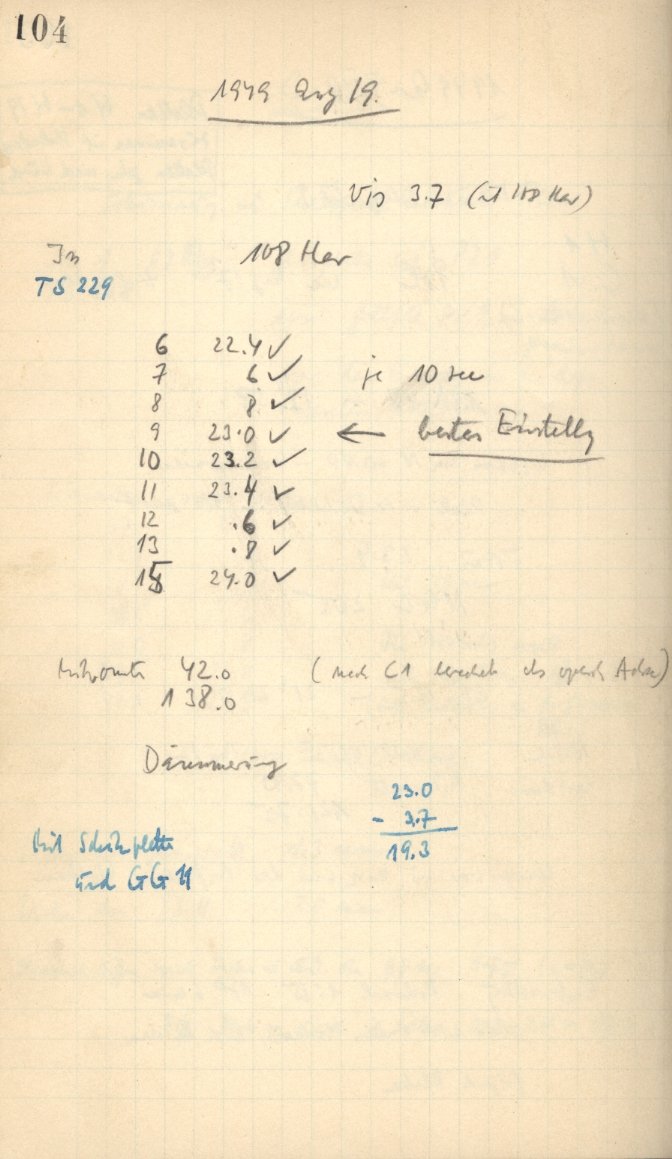 104
1949 Aug 19.
Vis 3.7 (mit 108 Her)
In 108 Her
TS 229
6 22.4 ✓
7 6 ✓ je 10 sec
8 8 ✓
9 23.0 ✓ ← beste Einstellg
10 23.2 ✓
11 23.4 ✓
12 .6 ✓
13 .8 ✓
15 24.0 ✓
42.0 (nach C1 als Achse)
138.0
Dämmerung
23.0
- 3.7
19.3
Mit Schichtplatte
und GG 11